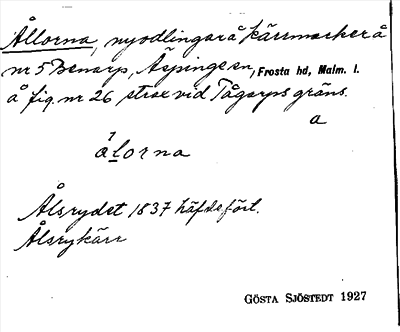 Ållorna, nyodlingar å kärrmarker å
nr 5 Benarp, Äspinge sn, Frosta hd, Malm. l.
å fig. nr 26 strax vid Tågarps gräns.
a
ålorna
Ålsrydet 1837 häfdefört.
Ålsrykärr
GÖSTA SJÖSTEDT 1927